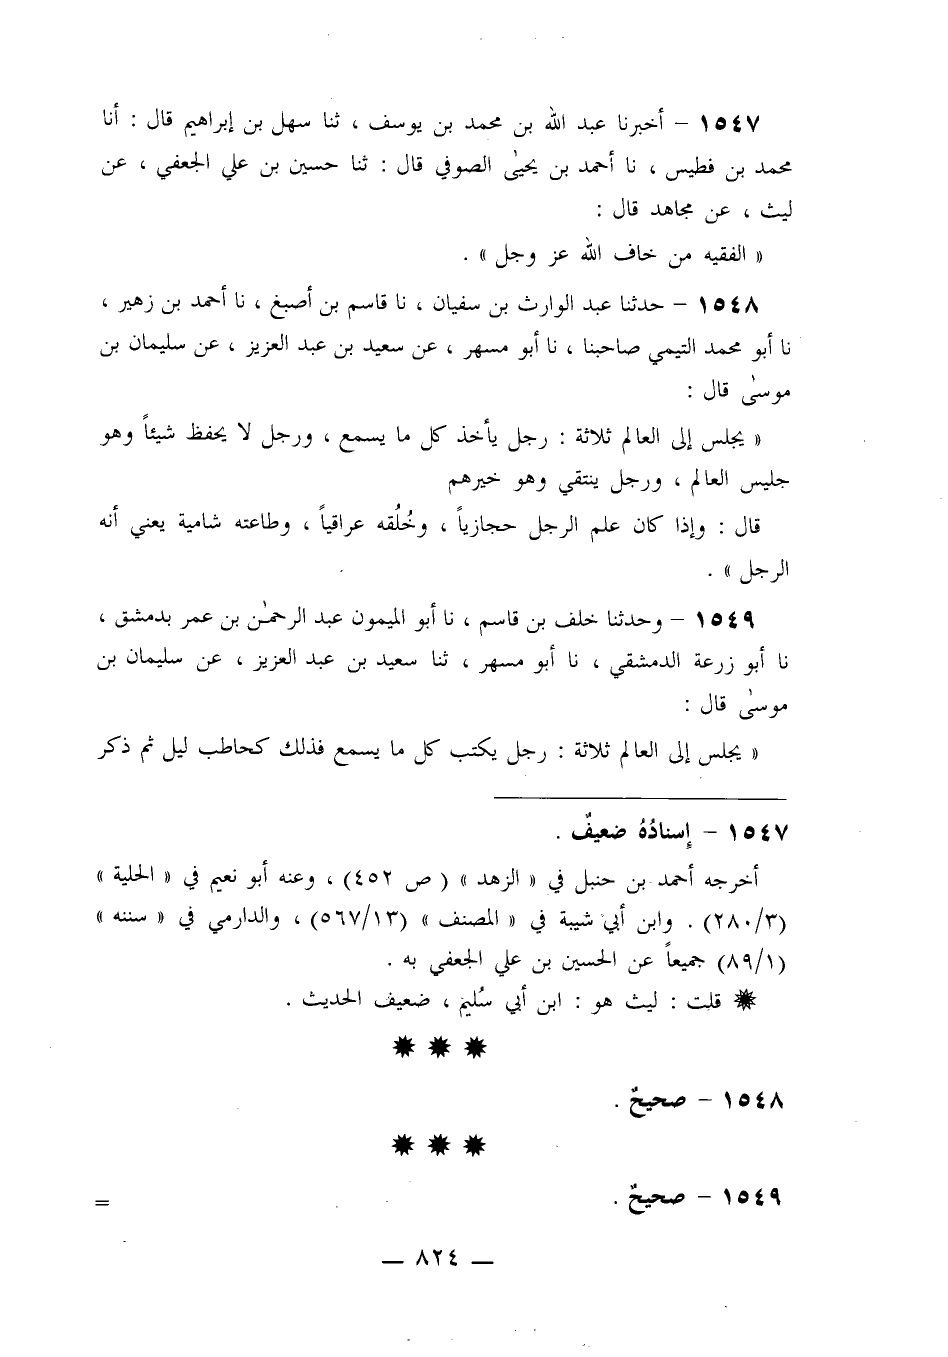 ١٥٤٧ – أخبرنا عبد الله بن محمد بن يوسف ، ثنا سهل بن إبراهيم قال : أنا
محمد بن فطيس ، نا أحمد بن يحيىٰ الصوفي قال : ثنا حسين بن علي الجعفي ، عن
ليث ، عن مجاهد قال :
« الفقيه من خاف الله عز وجل » .
١٥٤٨ – حدثنا عبد الوارث بن سفيان ، نا قاسم بن أصبغ ، نا أحمد بن زهير ،
نا أبو محمد التيمي صاحبنا ، نا أبو مسهر ، عن سعيد بن عبد العزيز ، عن سليمان بن
موسىٰ قال :
« يجلس إلى العالم ثلاثة : رجل يأخذ كل ما يسمع ، ورجل لا يحفظ شيئاً وهو
جليس العالم ، ورجل ينتقي وهو خيرهم
قال : وإذا كان علم الرجل حجازياً ، وخُلُقه عراقياً ، وطاعته شامية يعني أنه
الرجل » .
١٥٤٩ – وحدثنا خلف بن قاسم ، نا أبو الميمون عبد الرحمٰن بن عمر بدمشق ،
نا أبو زرعة الدمشقي ، نا أبو مسهر ، ثنا سعيد بن عبد العزيز ، عن سليمان بن
موسىٰ قال :
« يجلس إلى العالم ثلاثة : رجل يكتب كل ما يسمع فذلك كحاطب ليل ثم ذكر
١٥٤٧ – إسنادُهُ ضعيفٌ .
أخرجه أحمد بن حنبل في « الزهد » ( ص ٤٥٢) ، وعنه أبو نعيم في « الحلية »
(٢٨٠/٣) . وابن أبي شيبة في « المصنف » (٥٦٧/١٣) ، والدارمي في « سننه »
(٨٩/١) جميعاً عن الحسين بن علي الجعفي به .
✸ قلت : ليث هو : ابن أبي سُليم ، ضعيف الحديث .
✸ ✸ ✸
١٥٤٨ – صحيحٌ .
✸ ✸ ✸
١٥٤٩ – صحيحٌ . =
— ٨٢٤ —